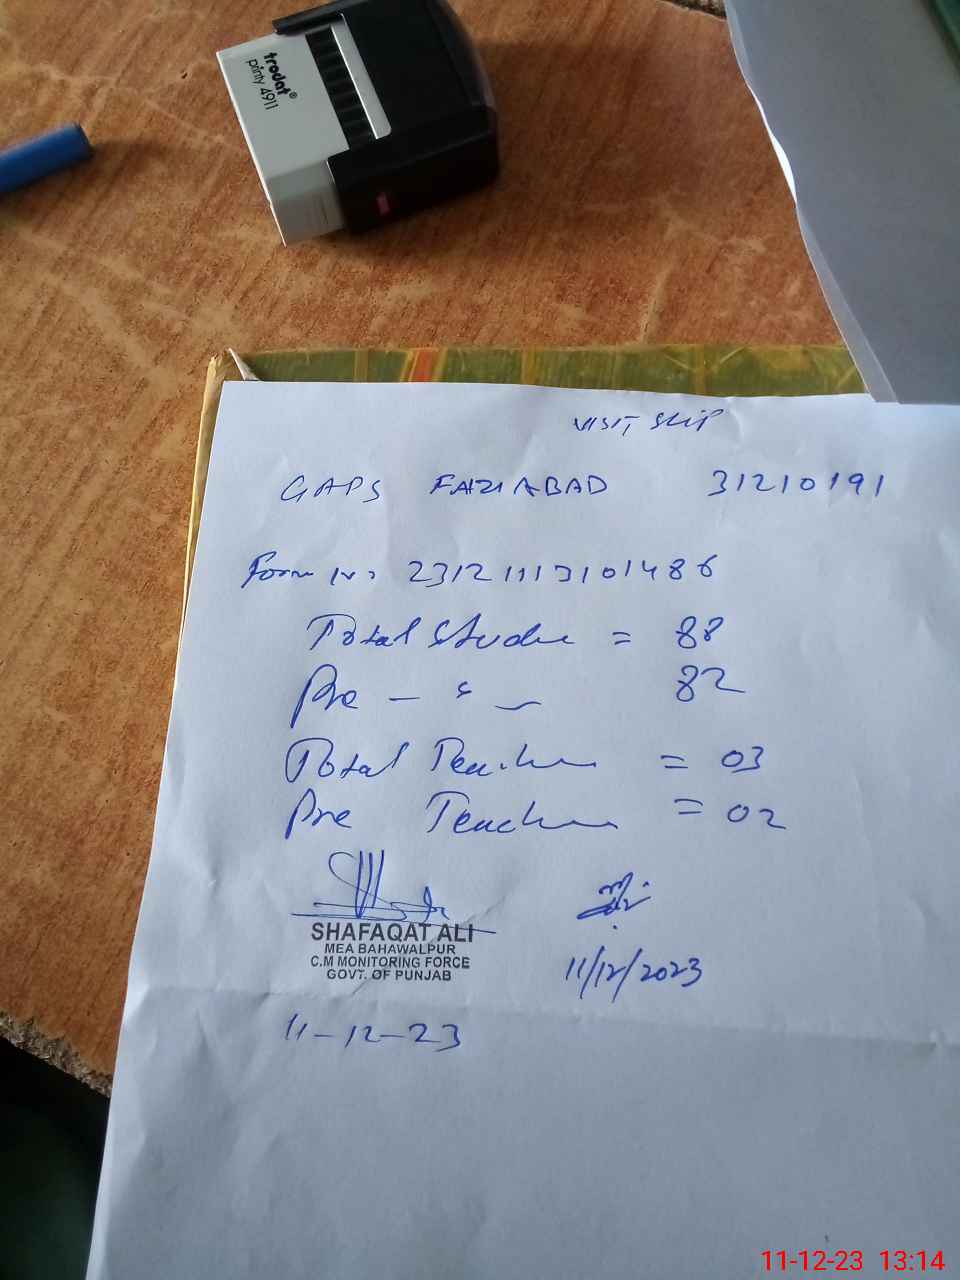 trodat®
printy 4911
VISIT SLIP
GAPS FAIZIABAD 31210191
Form No 23121113101486
Total Stude = 88
Pre - " - 82
Total Teacher = 03
Pre Teacher = 02
SHAFAQAT ALI
MEA BAHAWALPUR
C.M MONITORING FORCE
GOVT. OF PUNJAB
11/12/2023
11-12-23
11-12-23 13:14